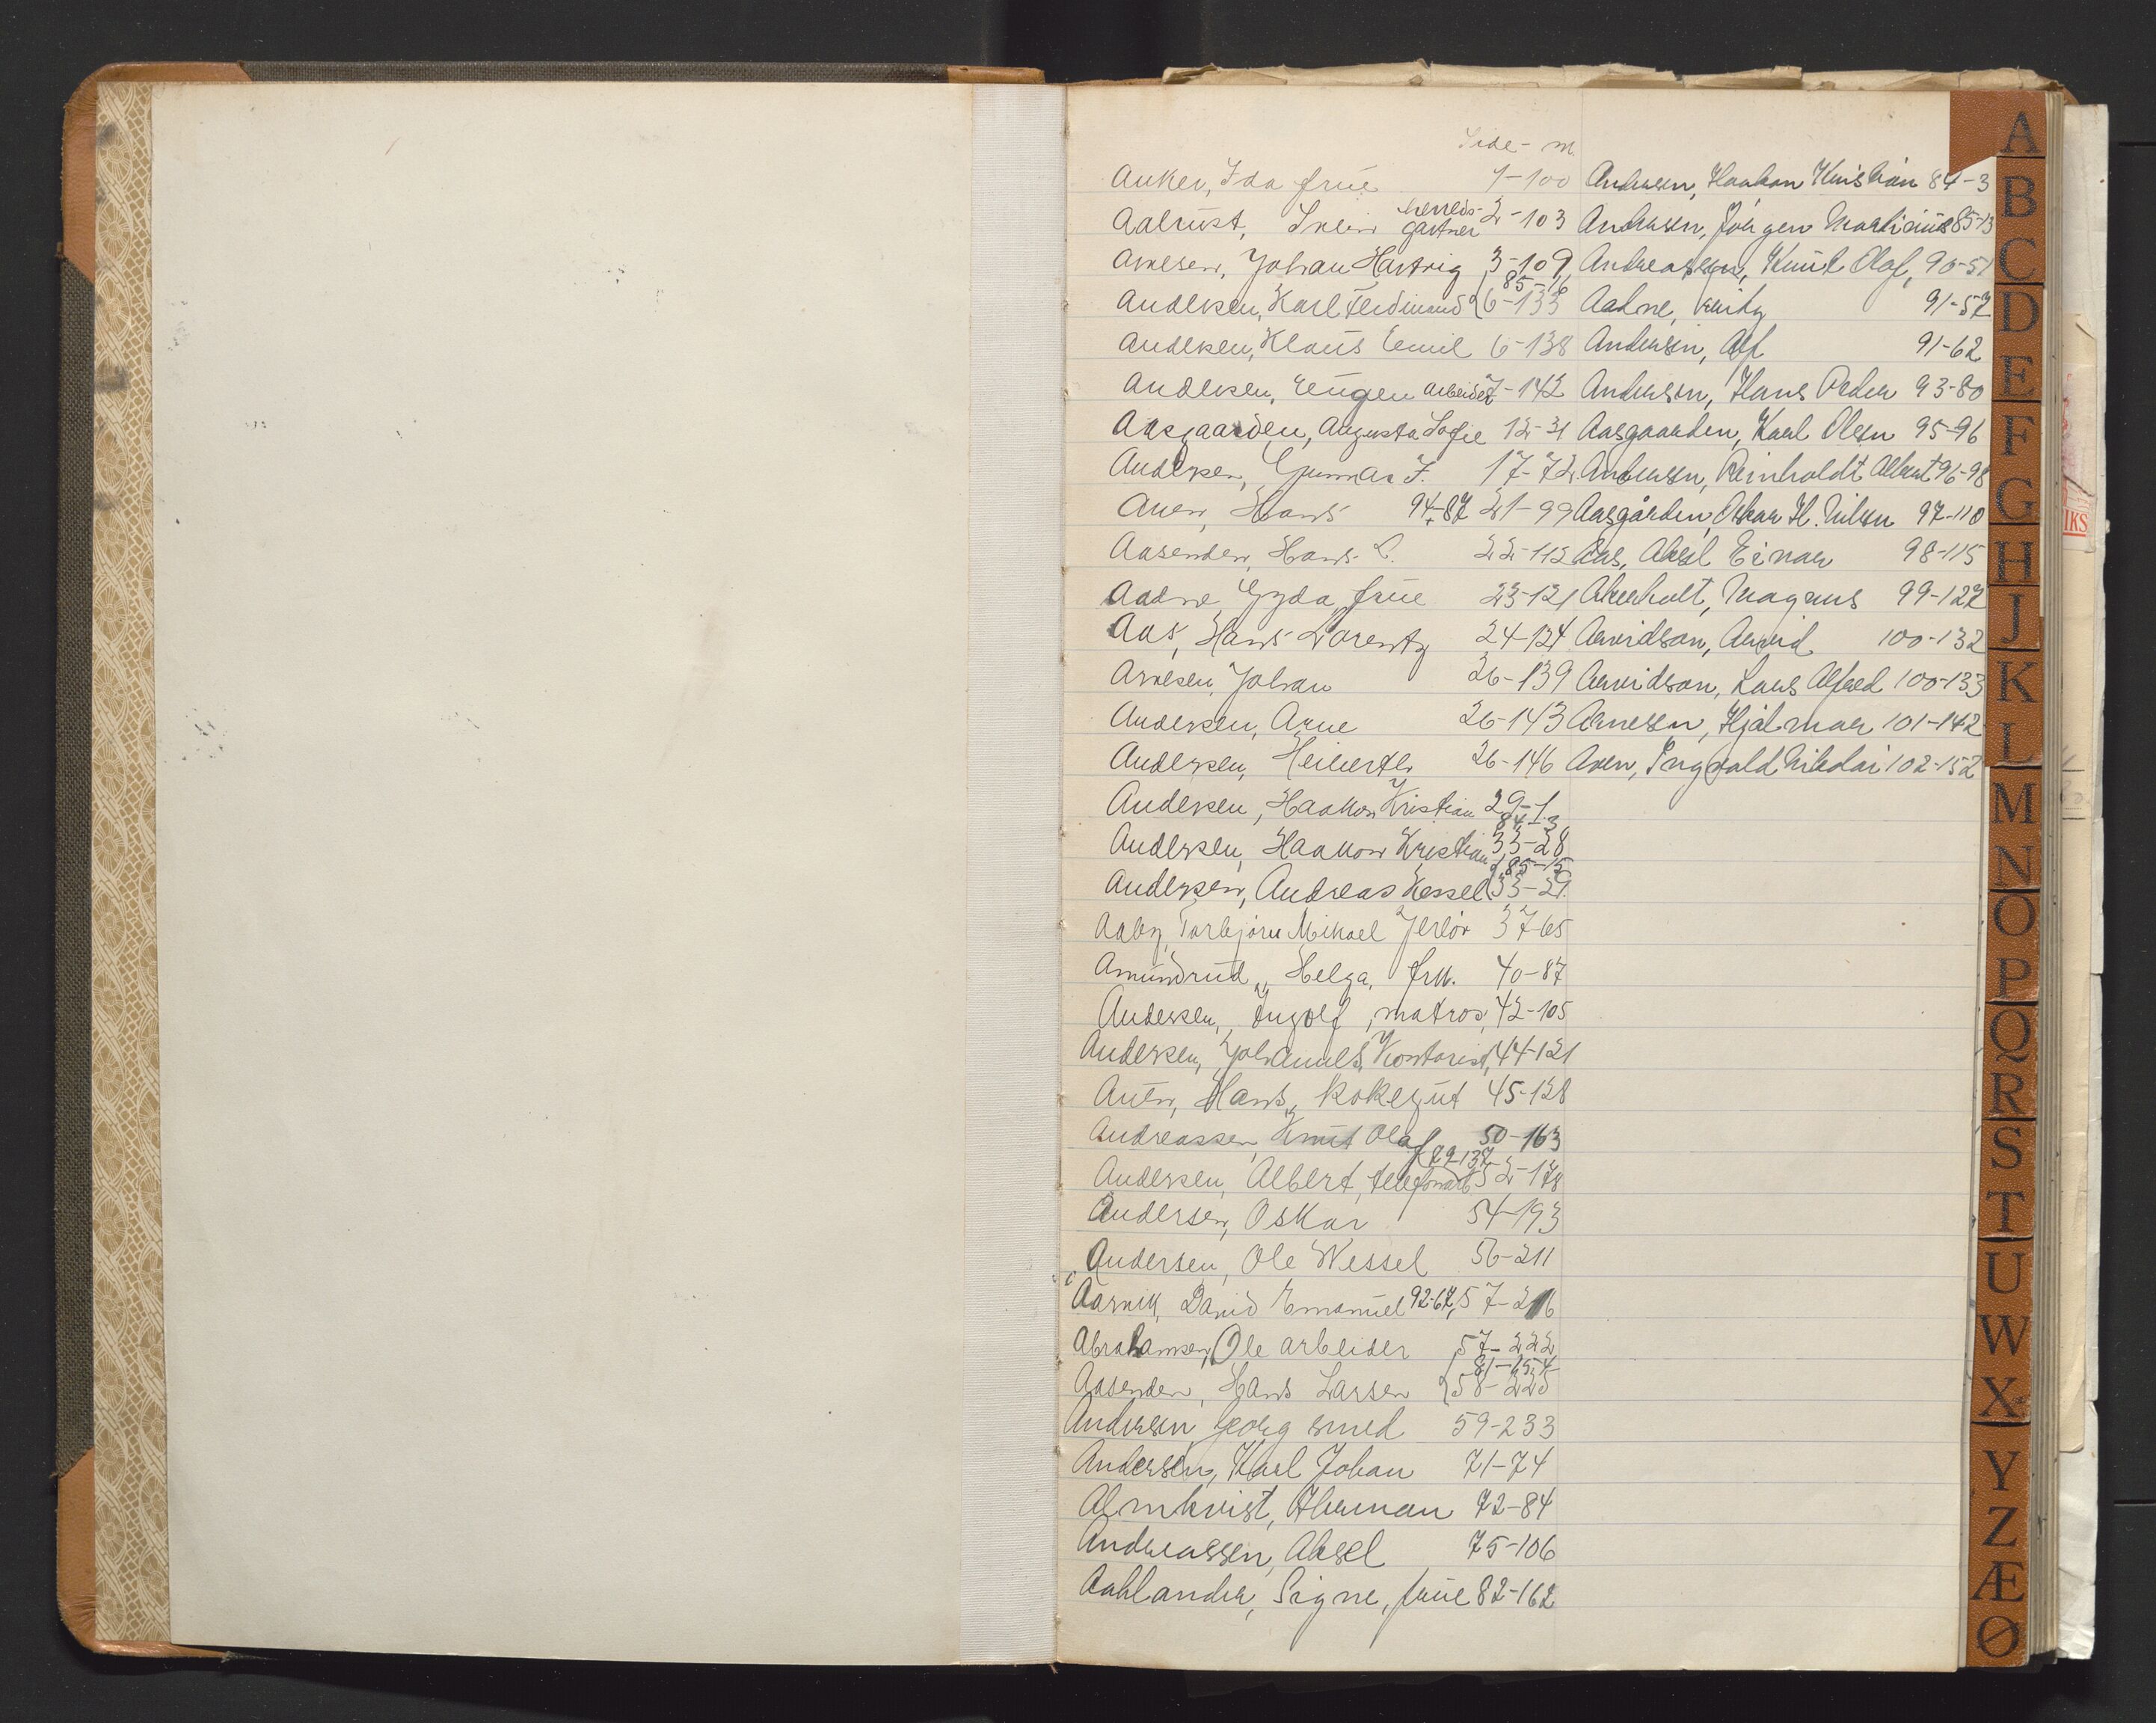 Side - nr.
Anker, Ida frue 1-100
Aalrust, Svein herreds-gartner 2-103
Arnesen, Johan Hartvig 3-109
Andersen, Karl Ferdinand 85-16 6-133
Andersen, Klaus Emil 6-138
Andersen, Eugen arbeider 7-142
Aasgaarden, Augusta Sofie 12-31
Andersen, Gunnar F. 17-72
Auen, Hans 94-87 21-99
Aasenden, Hans L. 22-112
Aadne, Gyda, frue 23-121
Aas, Hans Lorentz 24-124
Arnesen, Johan 26-139
Andersen, Arne 26-143
Andersen, Heibertb 26-146
Andersen, Haakon Kristian 29-1
Andersen, Haakon Kristian 84-3 33-28
Andersen, Andreas Wessel 85-15 33-29
Aaby, Torbjørn Mikael Jerlov 37-65
Amundrud, Helga, frk. 40-87
Andersen, Ingolf, matros, 42-105
Andersen, Johannes, Kontorist, 44-121
Auen, Hans, kokegut 45-128
Andreassen, Knut Olaf 50-163
Andersen, Albert, telefonarb 79-137 52-178
Andersen, Oskar 54-193
Andersen, Ole Wessel 56-211
Aarvik, David Emanuel 92-67, 57-216
Abrahamsen, Ole arbeider 57-222
Aasenden, Hans Larsen 81-154 58-225
Andersen Georg smed 59-233
Andersen, Karl Johan 71-74
Almkvist, Herman 72-84
Andreassen, Aksel 75-106
Aahlander, Signe, frue 82-162
Andersen, Haakon Kristian 84-3
Andersen, Jørgen Martinius 85-13
Andreassen, Knut Olaf, 90-51
Aadne, 91-57
Andersen, Alf 91-62
Andersen, Hans Peder 93-80
Aasgaarden, Karl Olsen 95-96
Andersen, Reinholdt Albert 96-98
Aasgården, Oskar H. Nilsen 97-110
Aas, Aksel Einar 98-115
Akerholt, Magnus 99-127
Arvidson, Arvid 100-132
Arvidson, Lars Alfred 100-133
Arnesen, Hjalmar 101-142
Aven, Ingvald Nikolai 102-152
A
B
C
D
E
F
G
H
J
K
L
M
N
O
P
Q
R
S
T
U
W
X
Y
Z
Æ
Ø
IKS